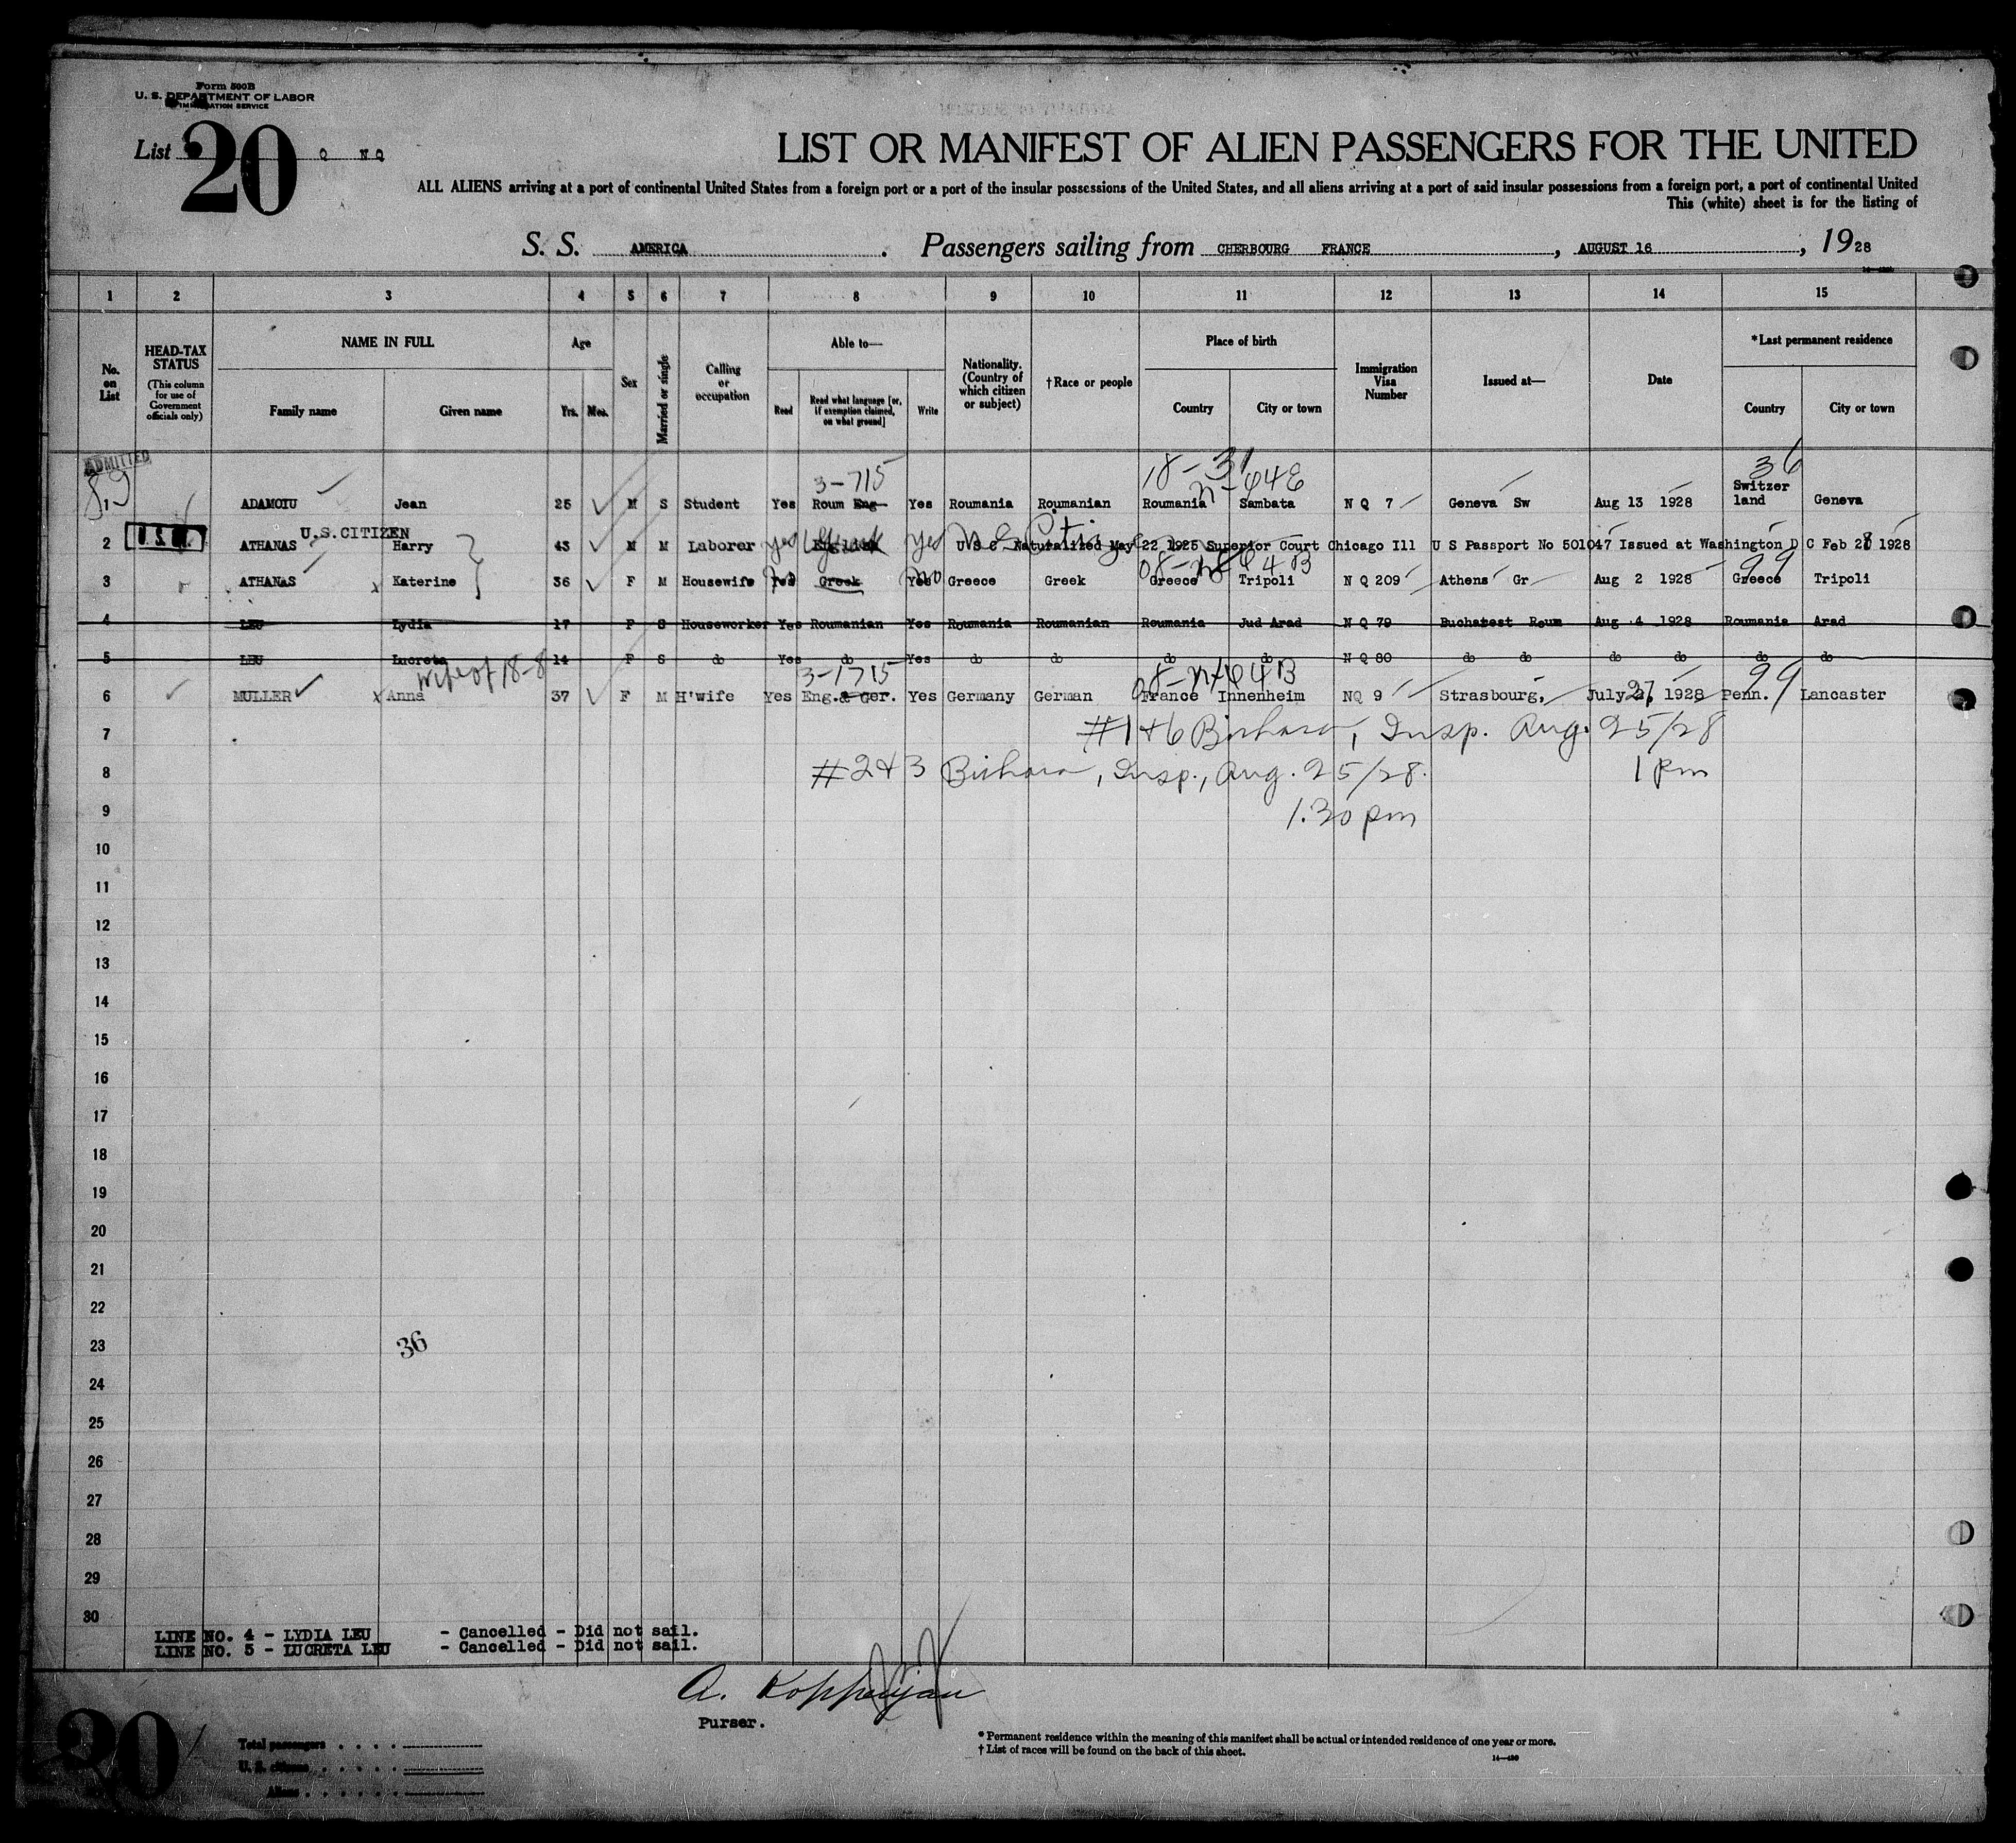 Form 500B
U. S. DEPARTMENT OF LABOR
IMMIGRATION SERVICE
List 20 Q NQ
LIST OR MANIFEST OF ALIEN PASSENGERS FOR THE UNITED
ALL ALIENS arriving at a port of continental United States from a foreign port or a port of the insular possessions of the United States, and all aliens arriving at a port of said insular possessions from a foreign port, a port of continental United
This (white) sheet is for the listing of
S. S. AMERICA. Passengers sailing from CHERBOURG FRANCE, AUGUST 16, 1928
1 2 3 4 5 6 7 8 9 10 11 12 13 14 15
No. on List
HEAD-TAX STATUS
(This column for use of Government officials only)
NAME IN FULL
Family name Given name
Age
Yrs. Mos.
Sex
Married or single
Calling or occupation
Able to—
Read Read what language [or, if exemption claimed, on what ground] Write
Nationality. (Country of which citizen or subject)
†Race or people
Place of birth
Country City or town
Immigration Visa Number
Issued at—
Date
*Last permanent residence
Country City or town
ADMITTED
3-715 18-31 36
1 ADAMOIU Jean 25 M S Student Yes Roum Eng Yes Roumania Roumanian Roumania Sambata N Q 7 Geneva Sw Aug 13 1928 Switzer land Geneva
U.S.CITIZEN
2 ATHANAS Harry 43 M M Laborer yes English yes U S C Naturalized May 22 1925 Superior Court Chicago Ill U S Passport No 501047 Issued at Washington D C Feb 28 1928
3 ATHANAS x Katerine 36 F M Housewife Yes Greek Yes no Greece Greek Greece Tripoli N Q 209 Athens Gr Aug 2 1928 99 Greece Tripoli
4 LEU Lydia 17 F S Houseworker Yes Roumanian Yes Roumania Roumanian Roumania Jud Arad N Q 79 Bucharest Roum Aug 4 1928 Roumania Arad
5 LEU Lucreta 14 F S do Yes do Yes do do do do N Q 80 do do do do do do
wife of 18-8 3-1715 99
6 MULLER x Anna 37 F M H'wife Yes Eng.& Ger. Yes Germany German France Innenheim NQ 9 Strasbourg, July 27, 1928 Penn. Lancaster
7 #1 & 6 Bishara, Insp. Aug. 25/28
1 pm
8 #2 & 3 Bishara, Insp., Aug. 25/28.
9 1.30 pm
10
11
12
13
14
15
16
17
18
19
20
21
22
23 36
24
25
26
27
28
29
30
LINE NO. 4 - LYDIA LEU - Cancelled - Did not sail.
LINE NO. 5 - LUCRETA LEU - Cancelled - Did not sail.
A. Koppenjan
Purser.
20
Total passengers
U. S. citizens
Aliens
* Permanent residence within the meaning of this manifest shall be actual or intended residence of one year or more.
† List of races will be found on the back of this sheet.